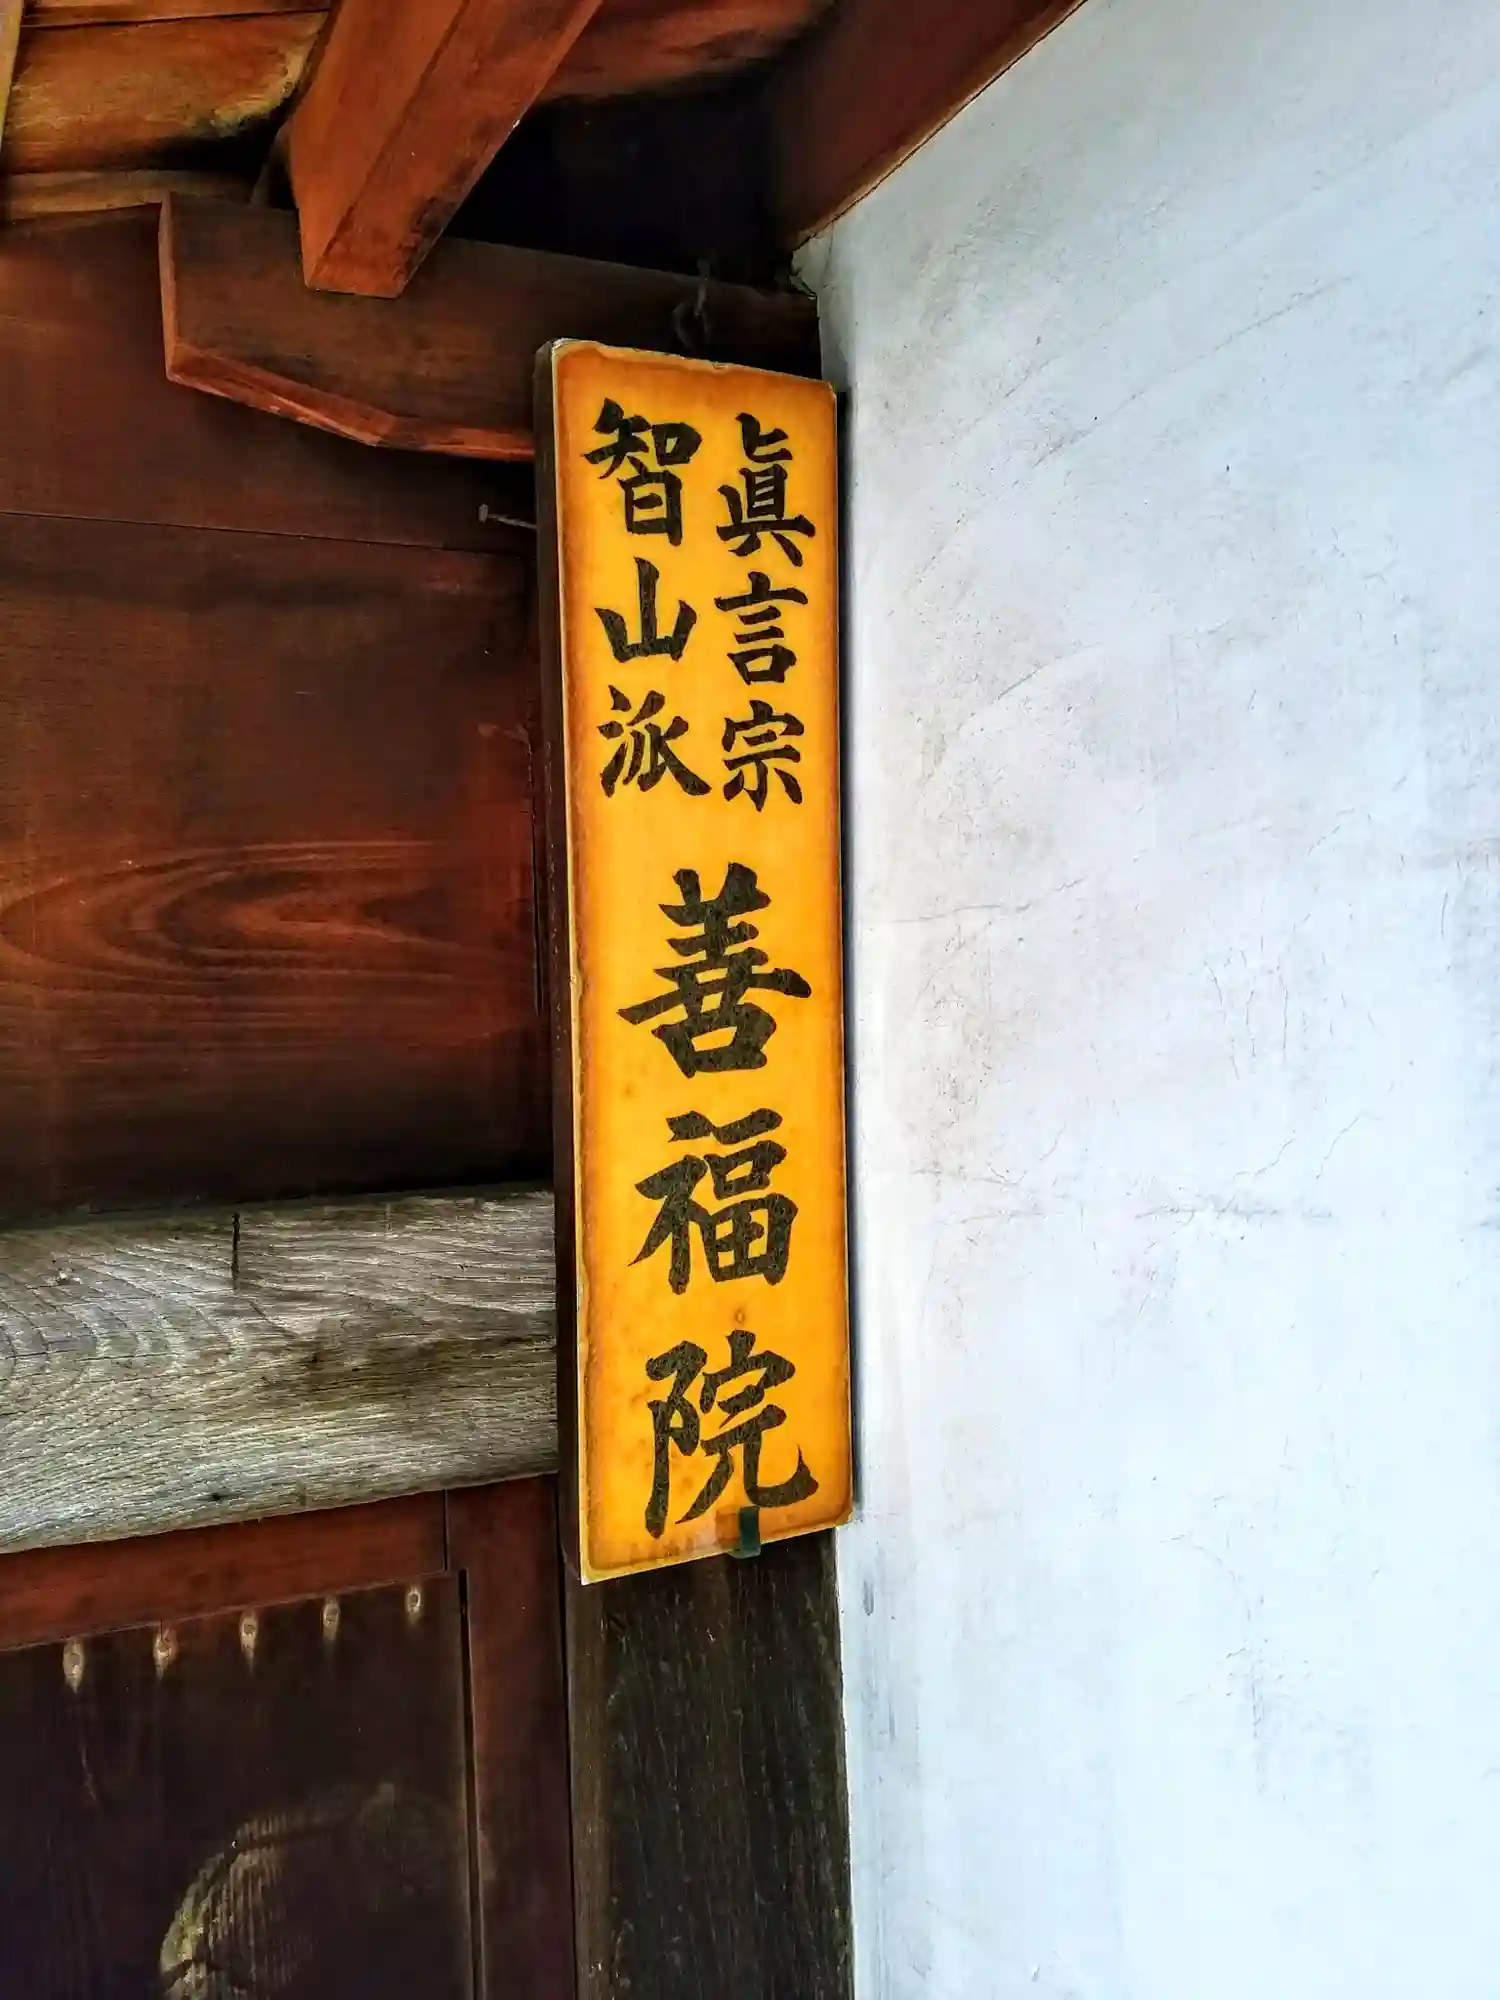 眞言宗
智山派
善福院